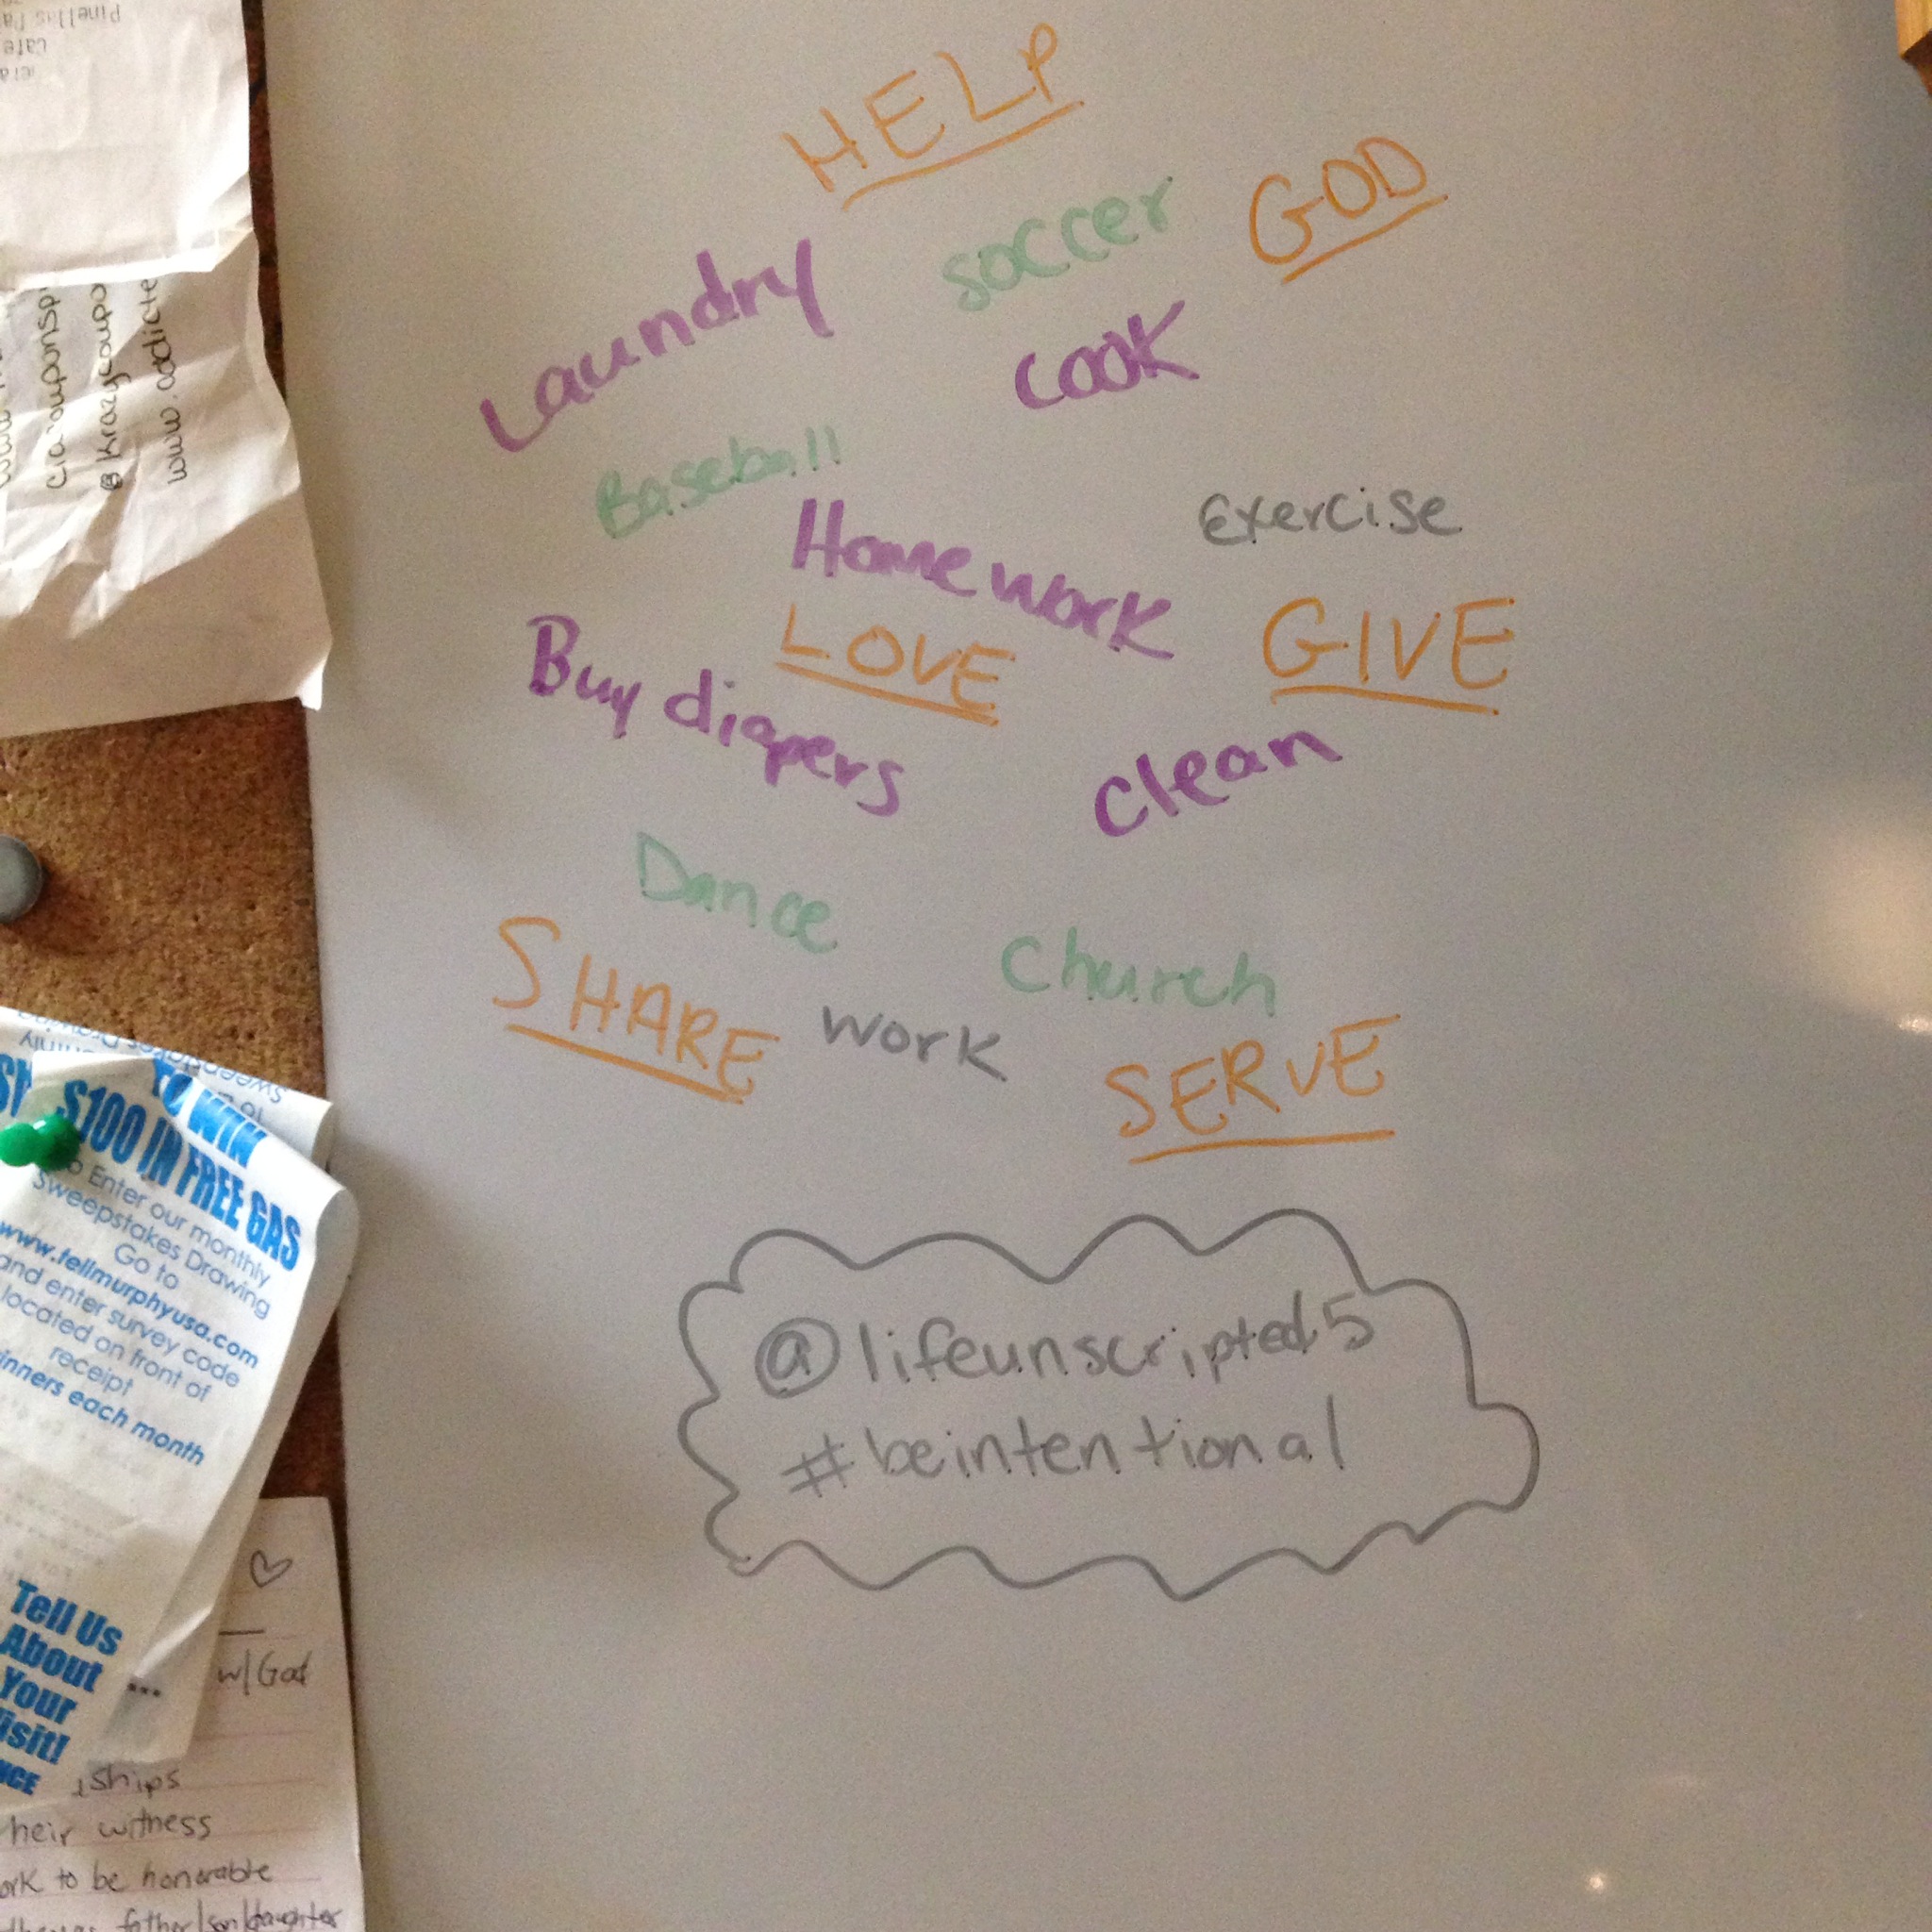 HELP
GOD
soccer
Laundry
cook
Baseball
Exercise
Homework
LOVE
GIVE
Buy diapers
clean
Dance
church
SHARE
work
SERVE
@lifeunscripted5
#beintentional
@krazycoupo
TO WIN
$100 IN FREE GAS
Enter our monthly
Sweepstakes Drawing
Go to
www.tellmurphyusa.com
and enter survey code
located on front of
receipt
inners each month
Tell Us
About
Your
isit!
w/God
ships
heir witness
ork to be honorable
father/son/daughter